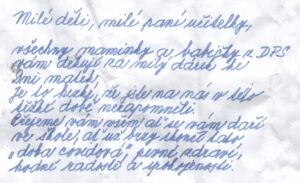 Milé děti, milé paní učitelky,
všechny maminky a babičky z DPS
vám děkují za milý dárek ke
Dni matek.
Je to hezké, že jste na nás v této
těžké době nezapomněli.
Přejeme vám všem, ať se vám daří
ve škole, ať už brzy skončí tato
„doba covidová" pevné zdraví,
hodně radosti a spokojenosti.